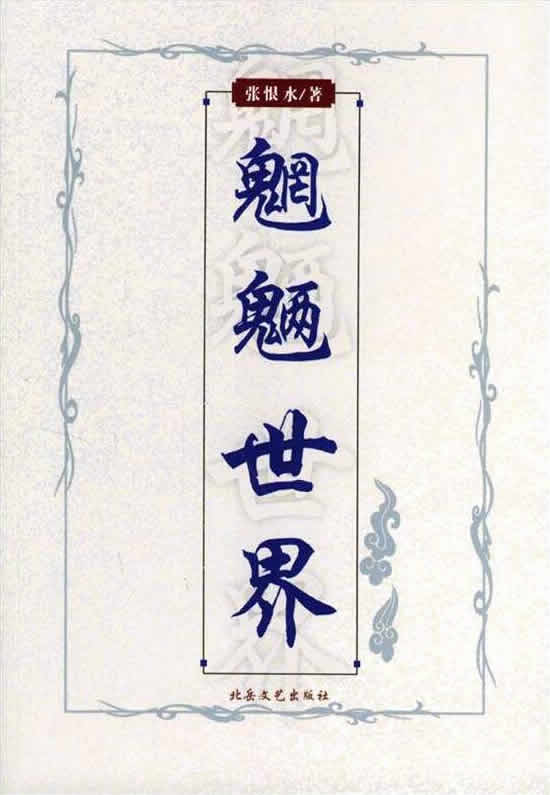 张恨水/著
魍魉世界
北岳文艺出版社